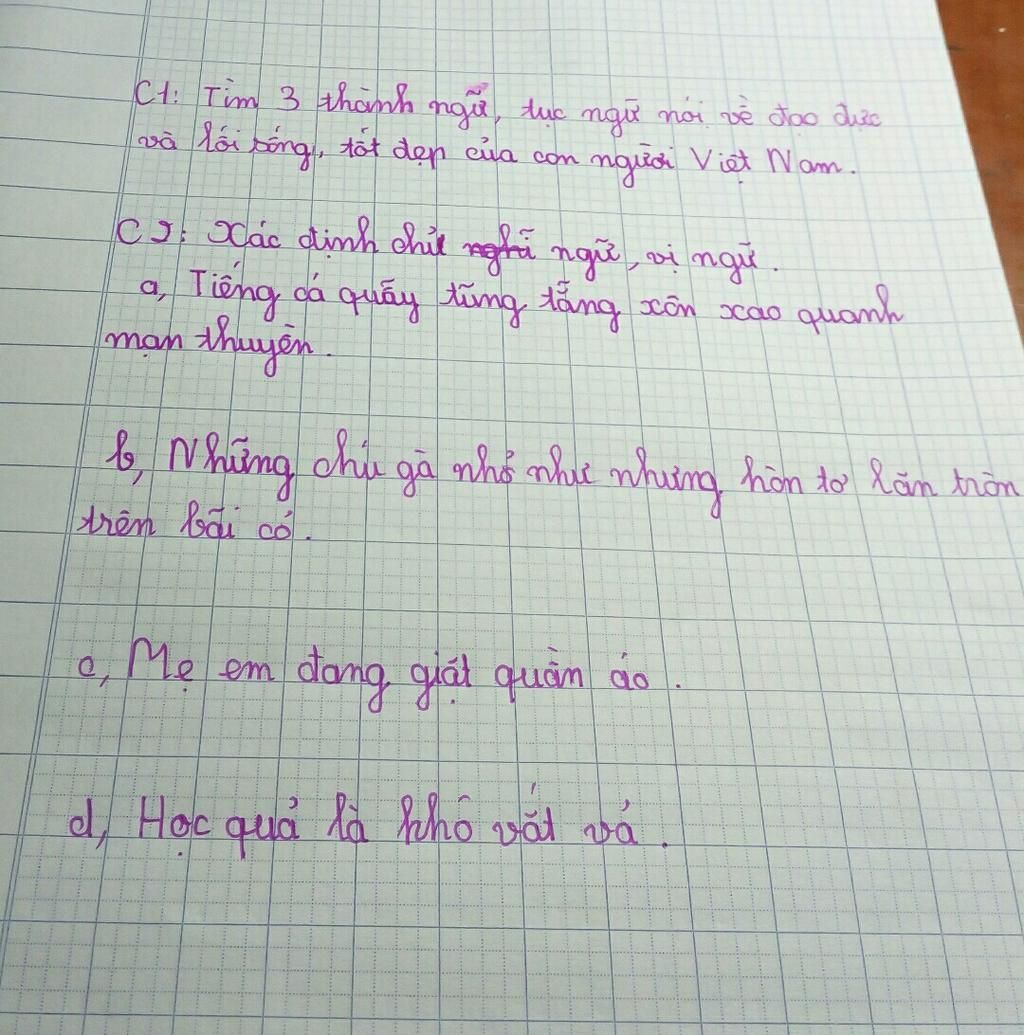 C1: Tìm 3 thành ngữ, tục ngữ nói về đạo đức
và lối sống, tốt đẹp của con người Việt Nam.
C2: Xác định chủ ngữ, vị ngữ.
a, Tiếng cá quẫy tũng tẵng xôn xao quanh
mạn thuyền.
b, Những chú gà nhỏ như nhưng hòn tơ lăn tròn
trên bãi cỏ.
c, Mẹ em đang giặt quần áo.
d, Học quả là khó vất vả.